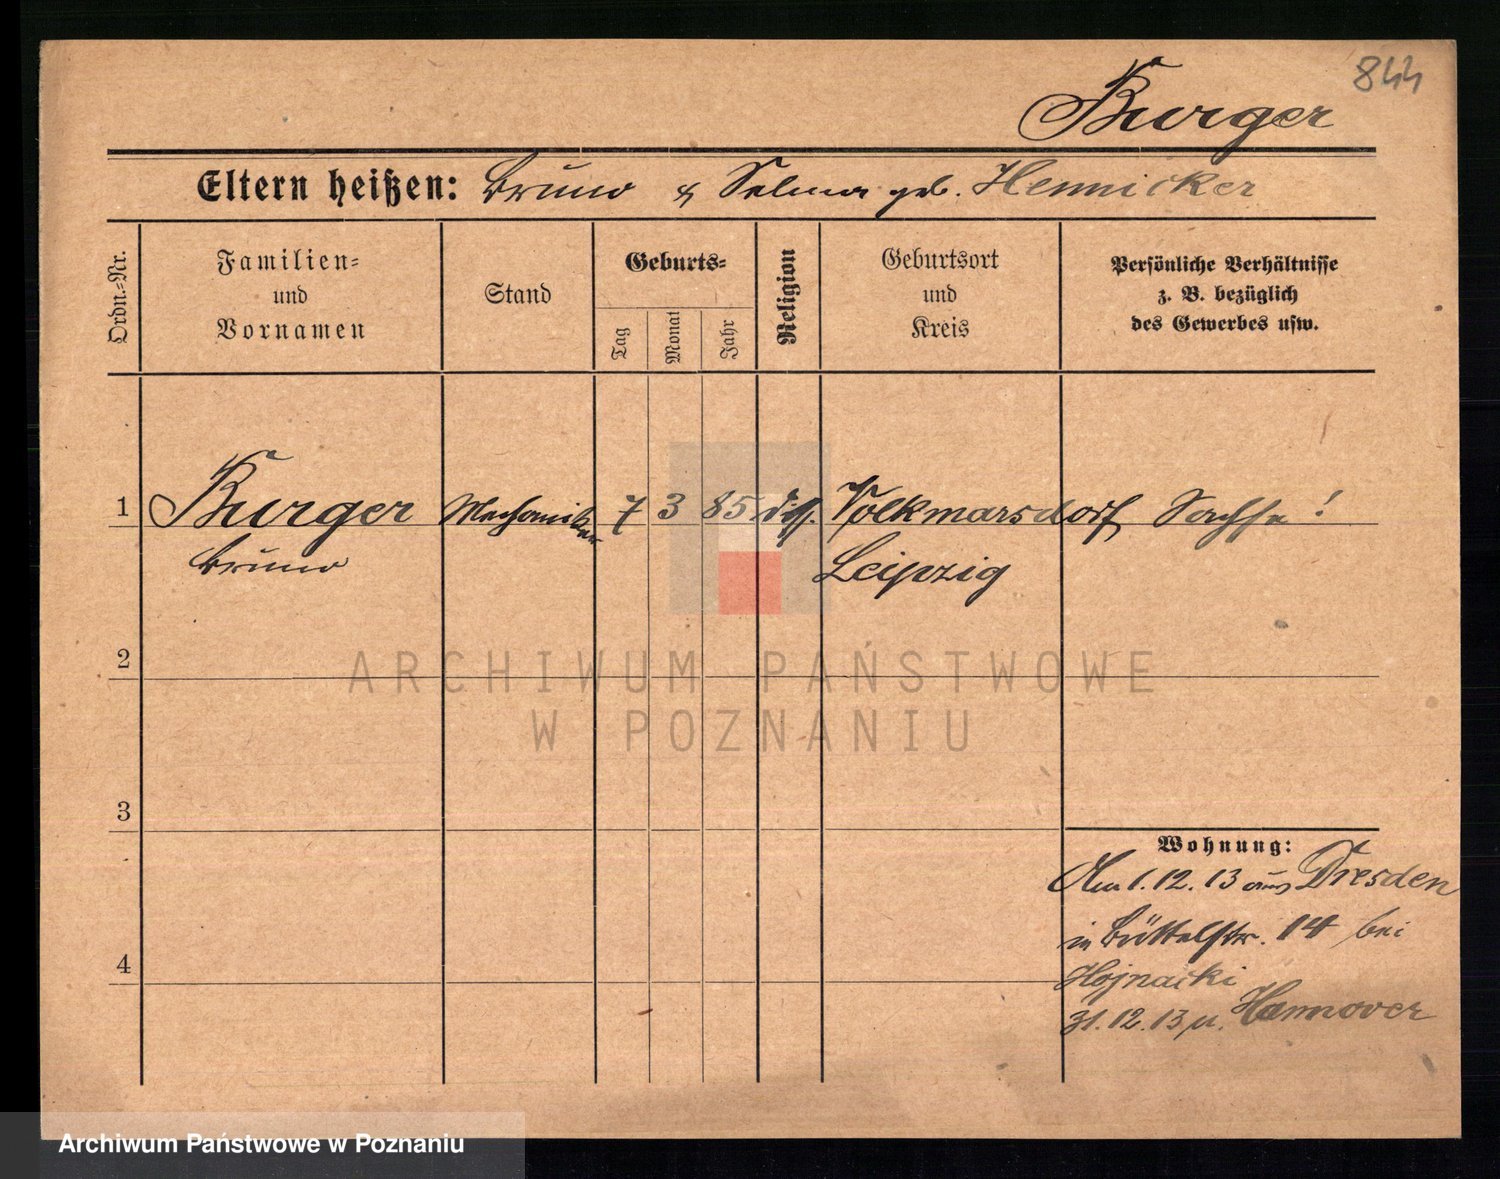 844
Burger
Eltern heißen: Bruno & Selma geb. Hennicker
Ordn.-Nr.
Familien-
und
Vornamen
Stand
Geburts-
Tag
Monat
Jahr
Religion
Geburtsort
und
Kreis
Persönliche Verhältnisse
z. B. bezüglich
des Gewerbes usw.
1 Burger Mechaniker 7 3 85 diss. Volkmarsdorf Sachse !
Bruno Leipzig
2
ARCHIWUM PAŃSTWOWE
W POZNANIU
3
Wohnung:
Am 1.12.13 aus Dresden
in Büttelstr. 14 bei
4
Hojnacki
31.12.13 n. Hannover
Archiwum Państwowe w Poznaniu